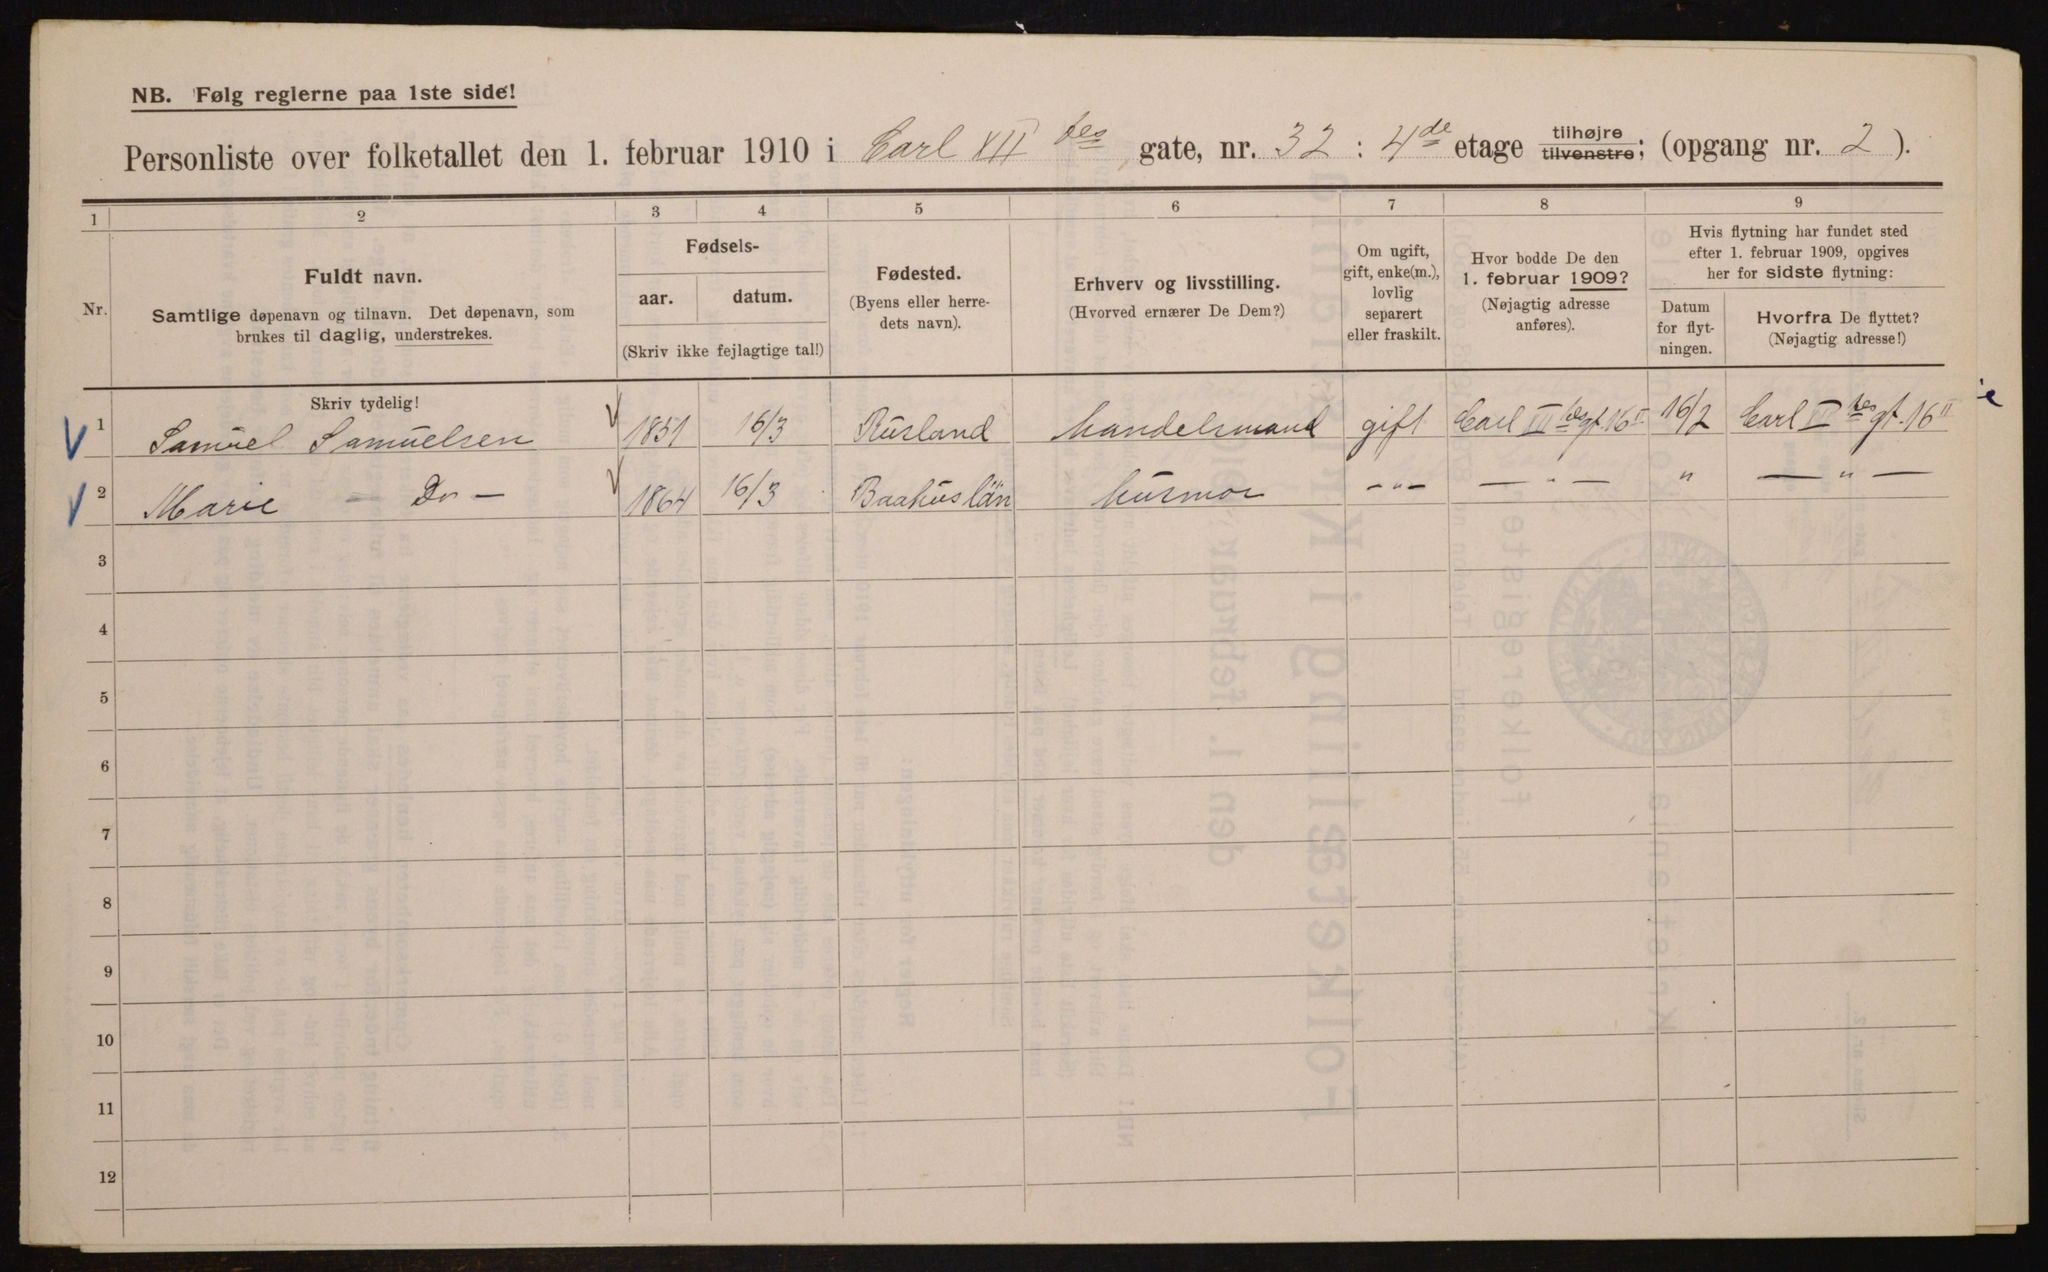 NB. Følg reglerne paa 1ste side!
Personliste over folketallet den 1. februar 1910 i Carl XII tes gate, nr. 32 : 4de etage tilhøjre tilvenstre; (opgang nr. 2 ).
1 2 3 4 5 6 7 8 9
Nr.
Fuldt navn.
Samtlige døpenavn og tilnavn. Det døpenavn, som
brukes til daglig, understrekes.
Fødsels-
aar. datum.
(Skriv ikke fejlagtige tal!)
Fødested.
(Byens eller herre-
dets navn).
Erhverv og livsstilling.
(Hvorved ernærer De Dem?)
Om ugift,
gift, enke(m.),
lovlig
separert
eller fraskilt.
Hvor bodde De den
1. februar 1909?
(Nøjagtig adresse
anføres).
Hvis flytning har fundet sted
efter 1. februar 1909, opgives
her for sidste flytning:
Datum
for flyt-
ningen.
Hvorfra De flyttet?
(Nøjagtig adresse!)
Skriv tydelig!
1 Samuel Samuelsen 1851 16/3 Rusland Handelsmand gift Carl III tes gt. 16 II 16/2 Carl III tes gt. 16 II
2 Marie — Do — 1864 16/3 Baahuslän Husmor — " — — " — " — " —
3
4
5
6
7
8
9
10
11
12